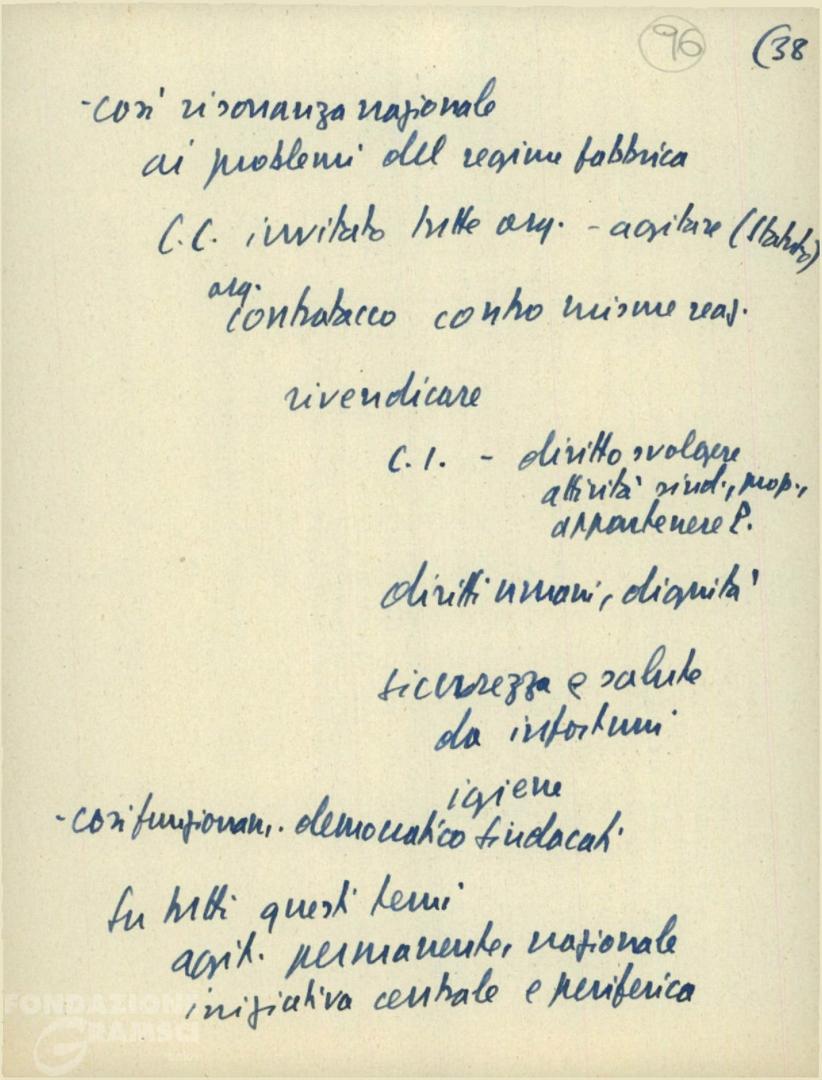 96 (38
-così risonanza nazionale
ai problemi del regime fabbrica
C.C. invitato tutte org. - agitare (Statuto)
org.
contrattacco contro misure reaz.
rivendicare
C.I. - diritto svolgere
attività sind., prop.,
appartenere P.
diritti umani, dignità
sicurezza e salute
da infortuni
igiene
-così funzionam. democratico sindacati
Su tutti questi temi
agit. permanente, nazionale
iniziativa centrale e periferica
FONDAZIONE
GRAMSCI